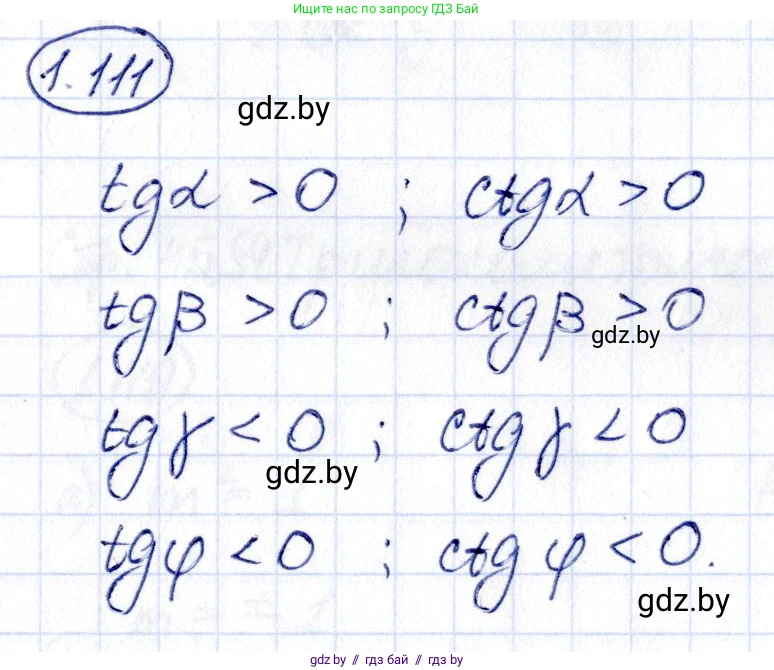 Ищите нас по запросу ГДЗ Бай
1.111
gdz.by
tgα > 0 ; ctgα > 0
tgβ > 0 ; ctgβ > 0
gdz.by
tgγ < 0 ; ctgγ < 0
gdz.by
tgφ < 0 ; ctgφ < 0.
gdz.by
gdz.by // гдз бай // gdz.by